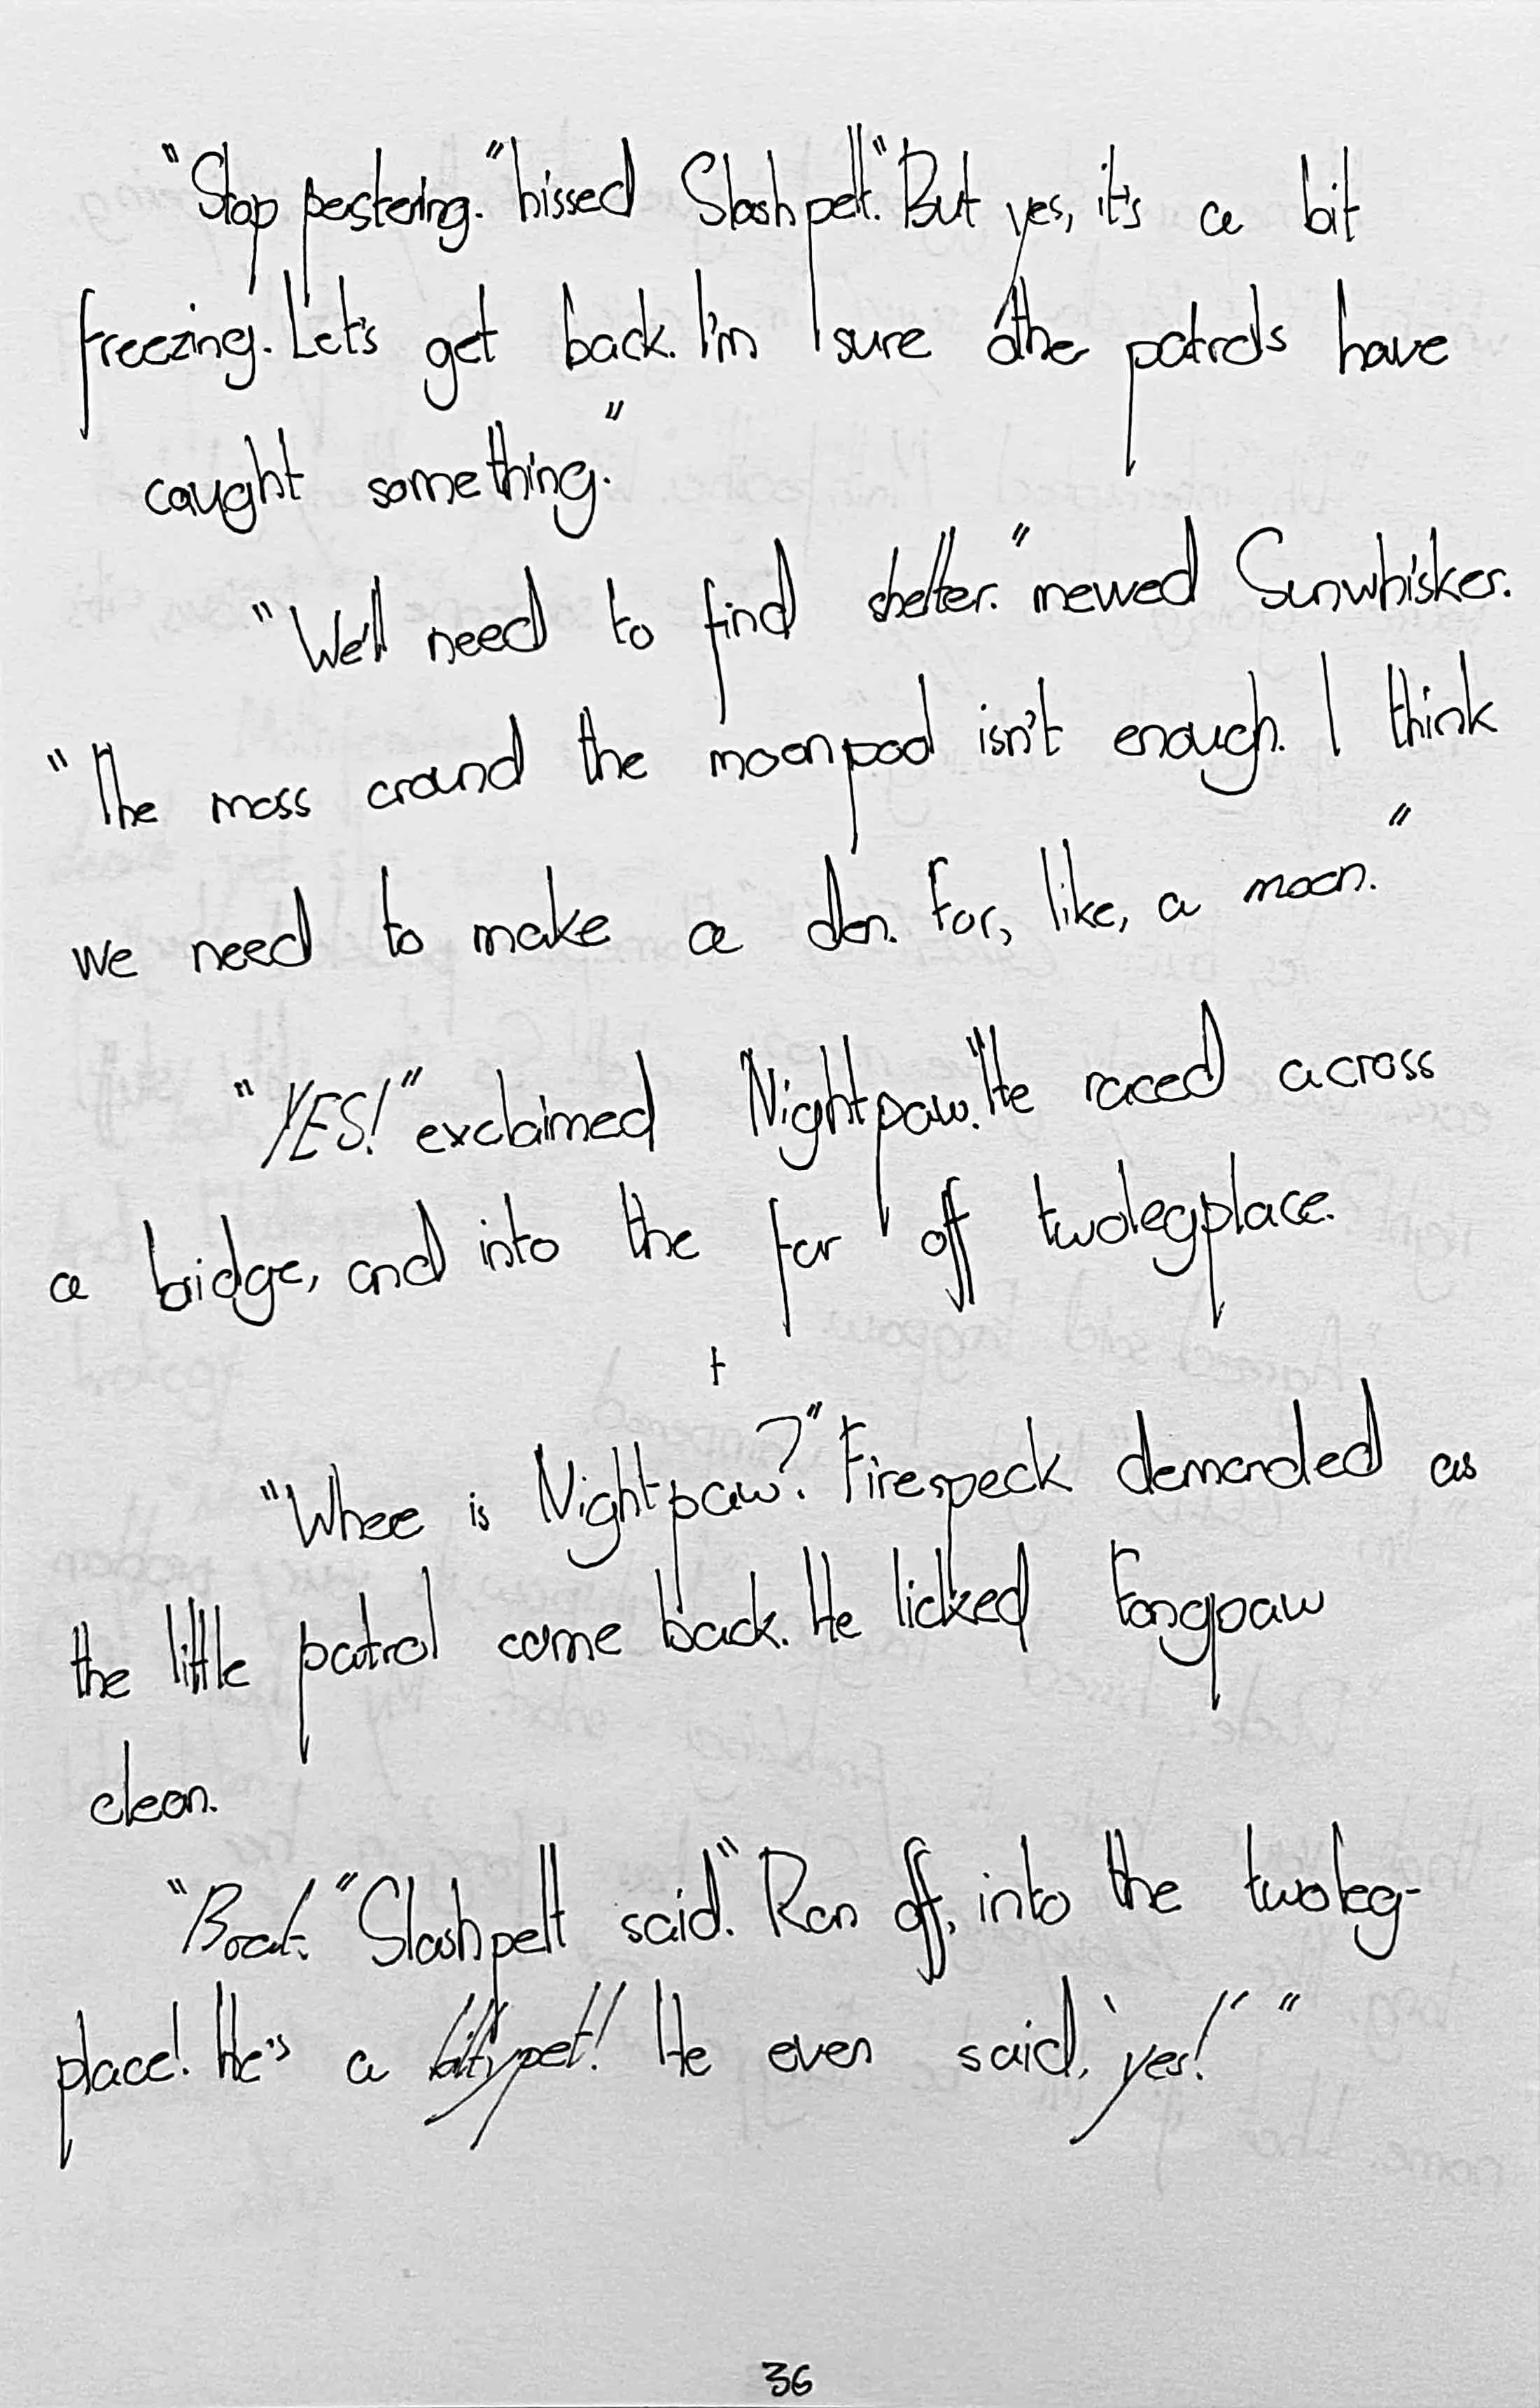 "Stop pestering." hissed Slashpelt. "But yes, it's a bit
freezing. Let's get back. I'm sure other patrols have
caught something."
"We'll need to find shelter." mewed Sunwhisker.
"The moss around the moonpool isn't enough. I think
we need to make a den. For, like, a moon."
"YES!" exclaimed Nightpaw. "He raced across
a bridge, and into the far off twolegplace.
+
"Where is Nightpaw?" Firespeck demanded as
the little patrol came back. He licked Fangpaw
clean.
"Brat." Slashpelt said. "Ran off, into the twoleg-
place! He's a kittypet! He even said, 'yes!' "
36